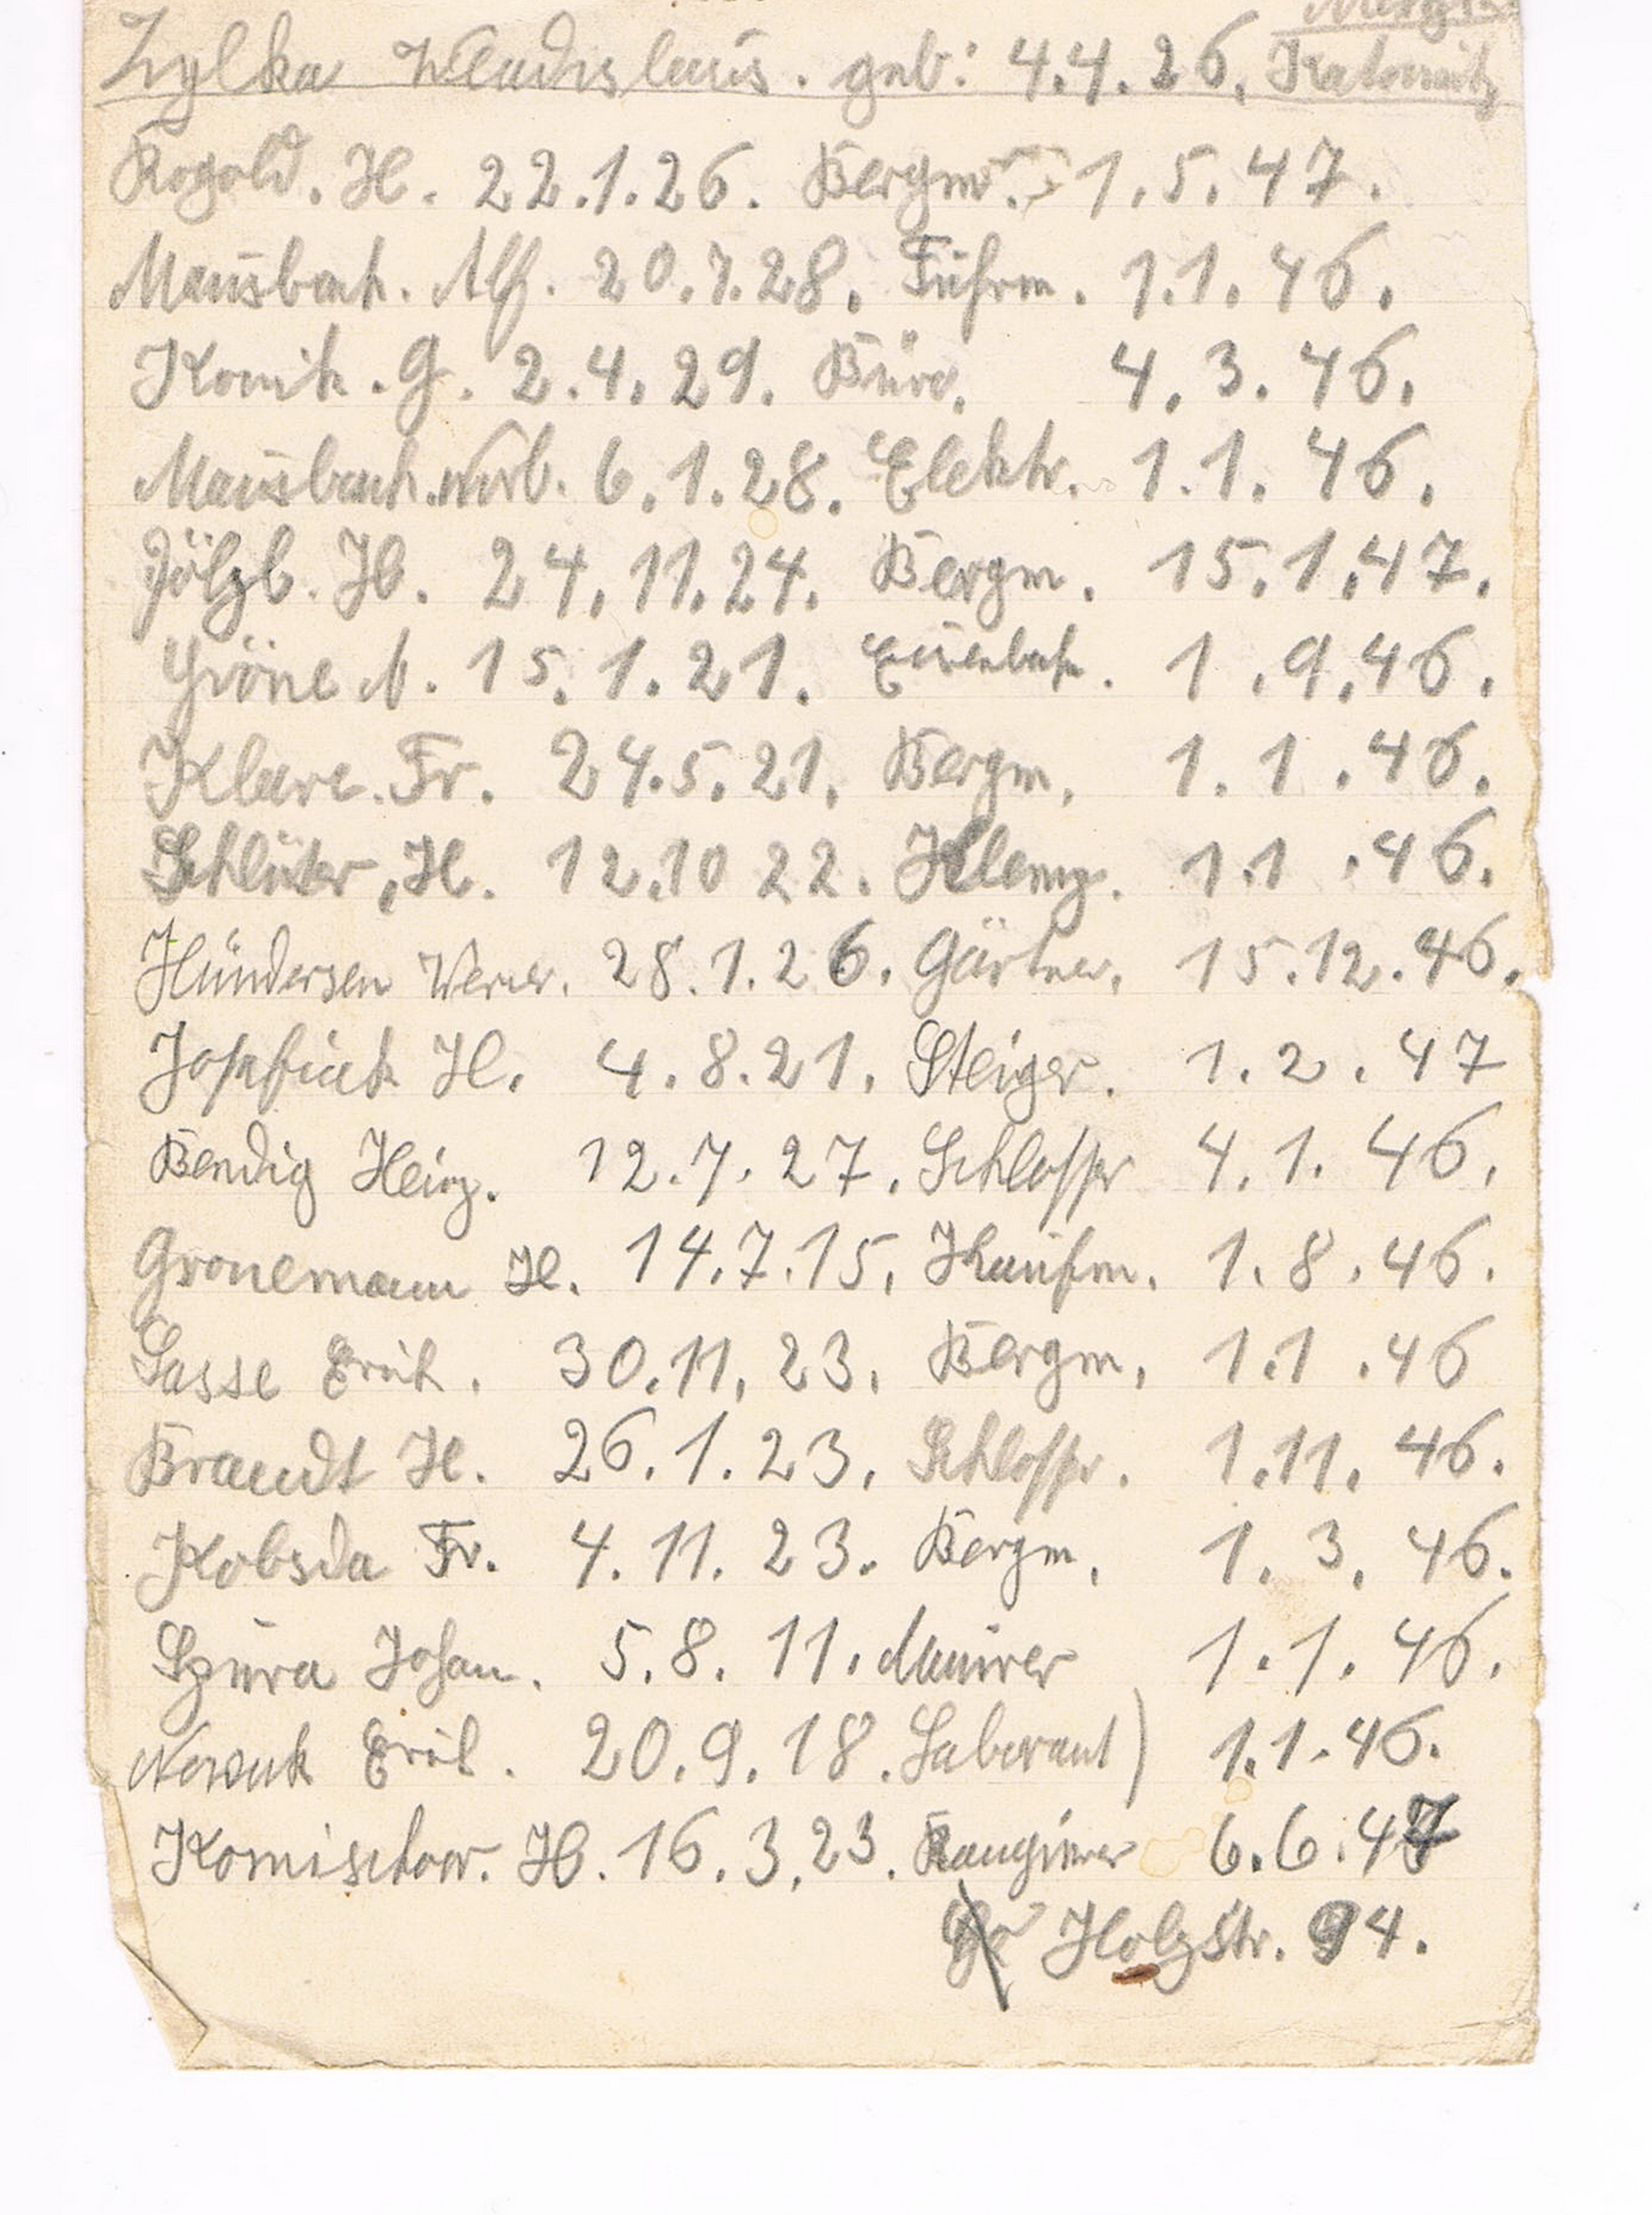 Zylka Wladislaus. geb: 4.4.26, Katowitz
Rogold. H. 22.1.26. Bergm. 1.5.47.
Mausbach. Alf. 20.7.28. Fuhrm. 1.1.46.
Konik. G. 2.4.29. Büro. 4.3.46.
Mausbach. Norb. 6.1.28. Elektr. 1.1.46.
H. 24.11.24. Bergm. 15.1.47.
Gröne A. 15.1.21. Eisenbah. 1.9.46.
Klare. Fr. 24.5.21. Bergm. 1.1.46.
Schlüter, H. 12.10 22. Klemp. 1.1.46.
Hündersen Werner. 28.1.26. Gärtner. 15.12.46.
H. 4.8.21. Steiger. 1.2.47
Bendig Heinz. 12.7.27. Schlosser 4.1.46.
Gronemann H. 14.7.15. Kaufm. 1.8.46.
Sasse Erich. 30.11.23. Bergm. 1.1.46
Brandt H. 26.1.23. Schlosser. 1.11.46.
Kobsda Fr. 4.11.23. Bergm. 1.3.46.
Szura Johan. 5.8.11. Maurer 1.1.46.
Nowak Erich. 20.9.18. Laborant) 1.1.46.
Komischow. H. 16.3.23. Rangierer 6.6.47
Holzstr. 94.